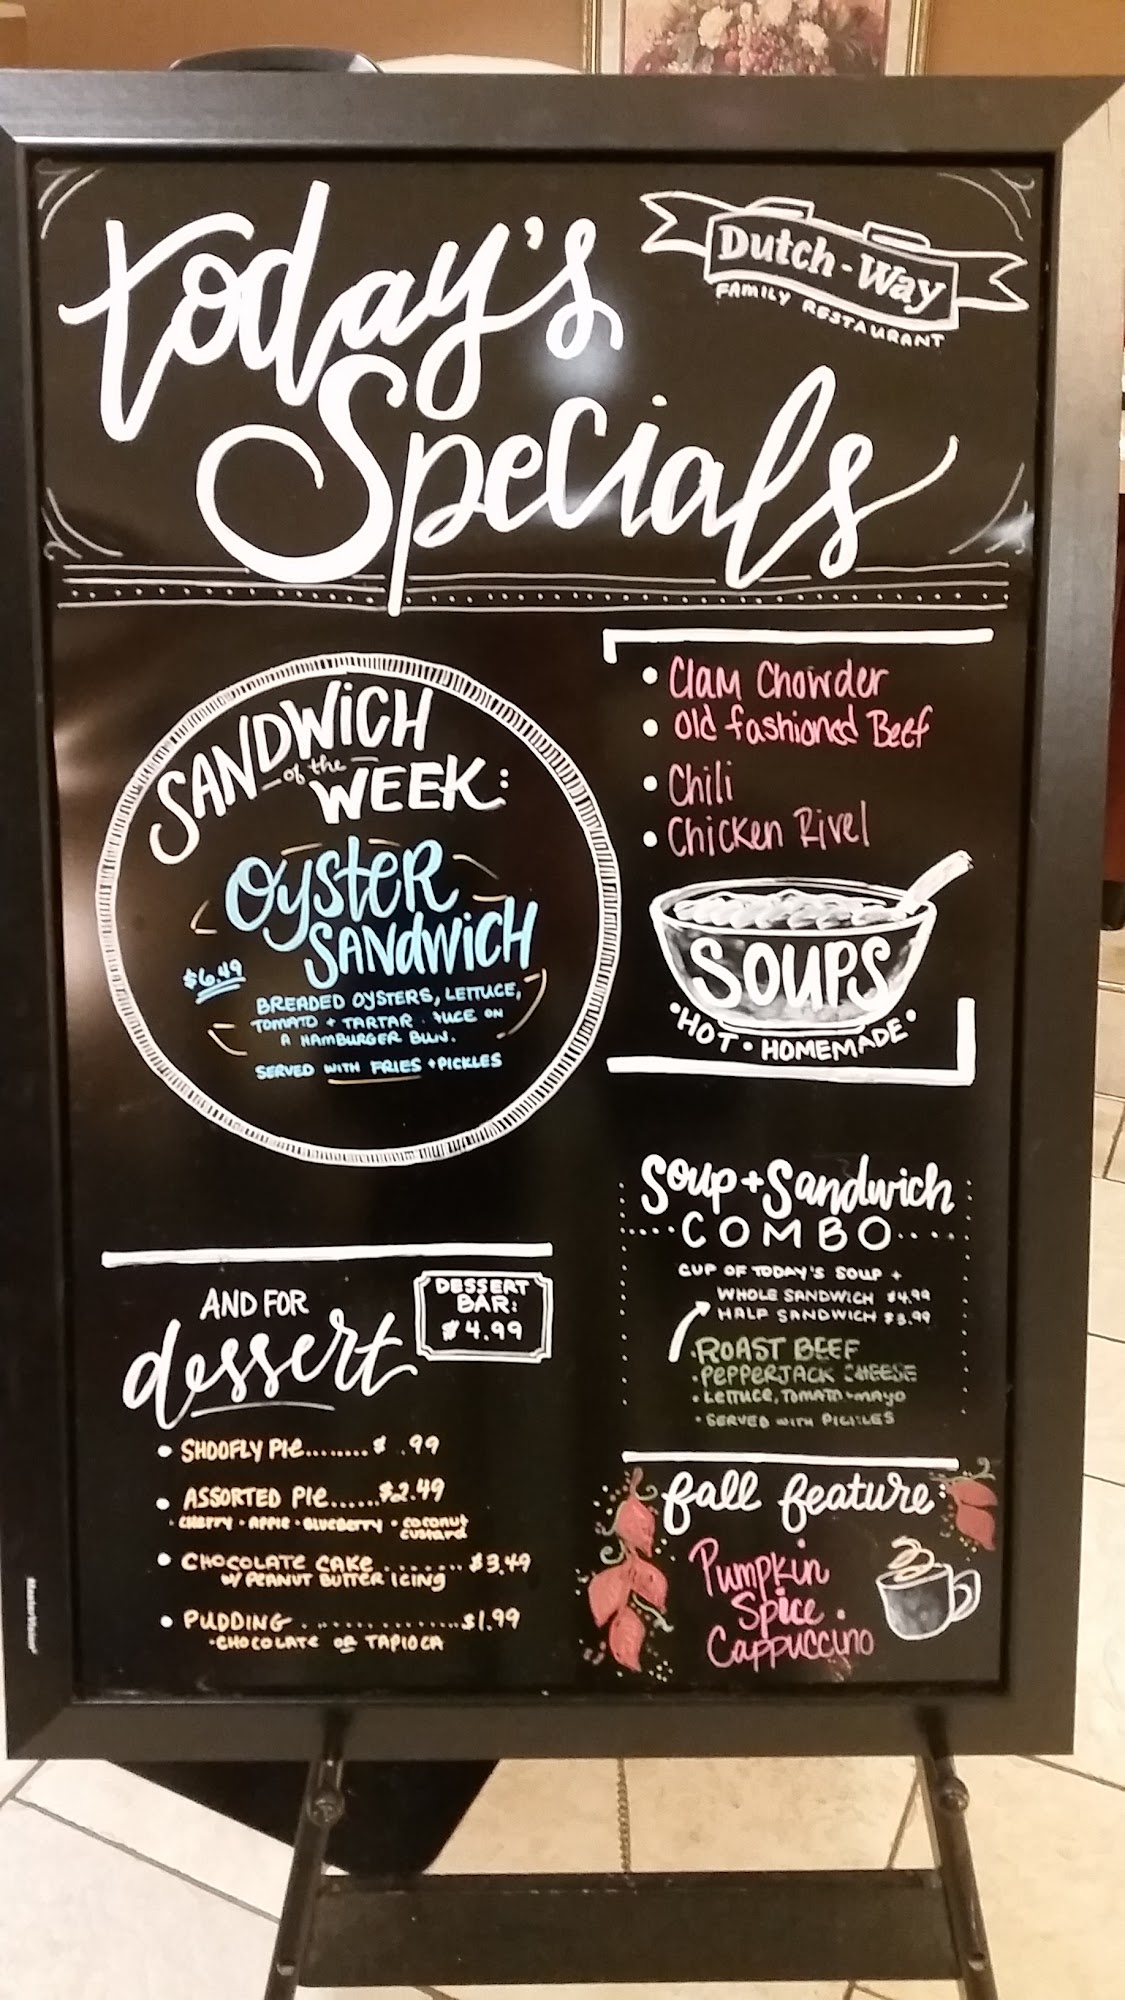 today's
Specials
Dutch-Way
FAMILY RESTAURANT
SANDWICH
of the
WEEK:
OYSTER
SANDWICH
$6.49
BREADED OYSTERS, LETTUCE,
TOMATO + TARTAR UCE ON
A HAMBURGER BUN.
SERVED WITH FRIES + PICKLES
• Clam Chowder
• Old fashioned Beef
• Chili
• Chicken Rivel
SOUPS
• HOT • HOMEMADE •
Soup + Sandwich
COMBO
CUP OF TODAY'S SOUP +
WHOLE SANDWICH $4.99
HALF SANDWICH $3.99
• ROAST BEEF
• PEPPERJACK CHEESE
• LETTUCE, TOMATO + mayo
• SERVED WITH PICKLES
AND FOR
dessert
DESSERT
BAR:
$4.99
• SHOOFLY PIE........$ .99
• ASSORTED PIE......$2.49
• CHERRY • APPLE • BLUEBERRY • coconut
custard
• CHOCOLATE CAKE........$3.49
W/ PEANUT BUTTER ICING
• PUDDING..............$1.99
• CHOCOLATE OR TAPIOCA
fall feature:
Pumpkin
Spice
Cappuccino